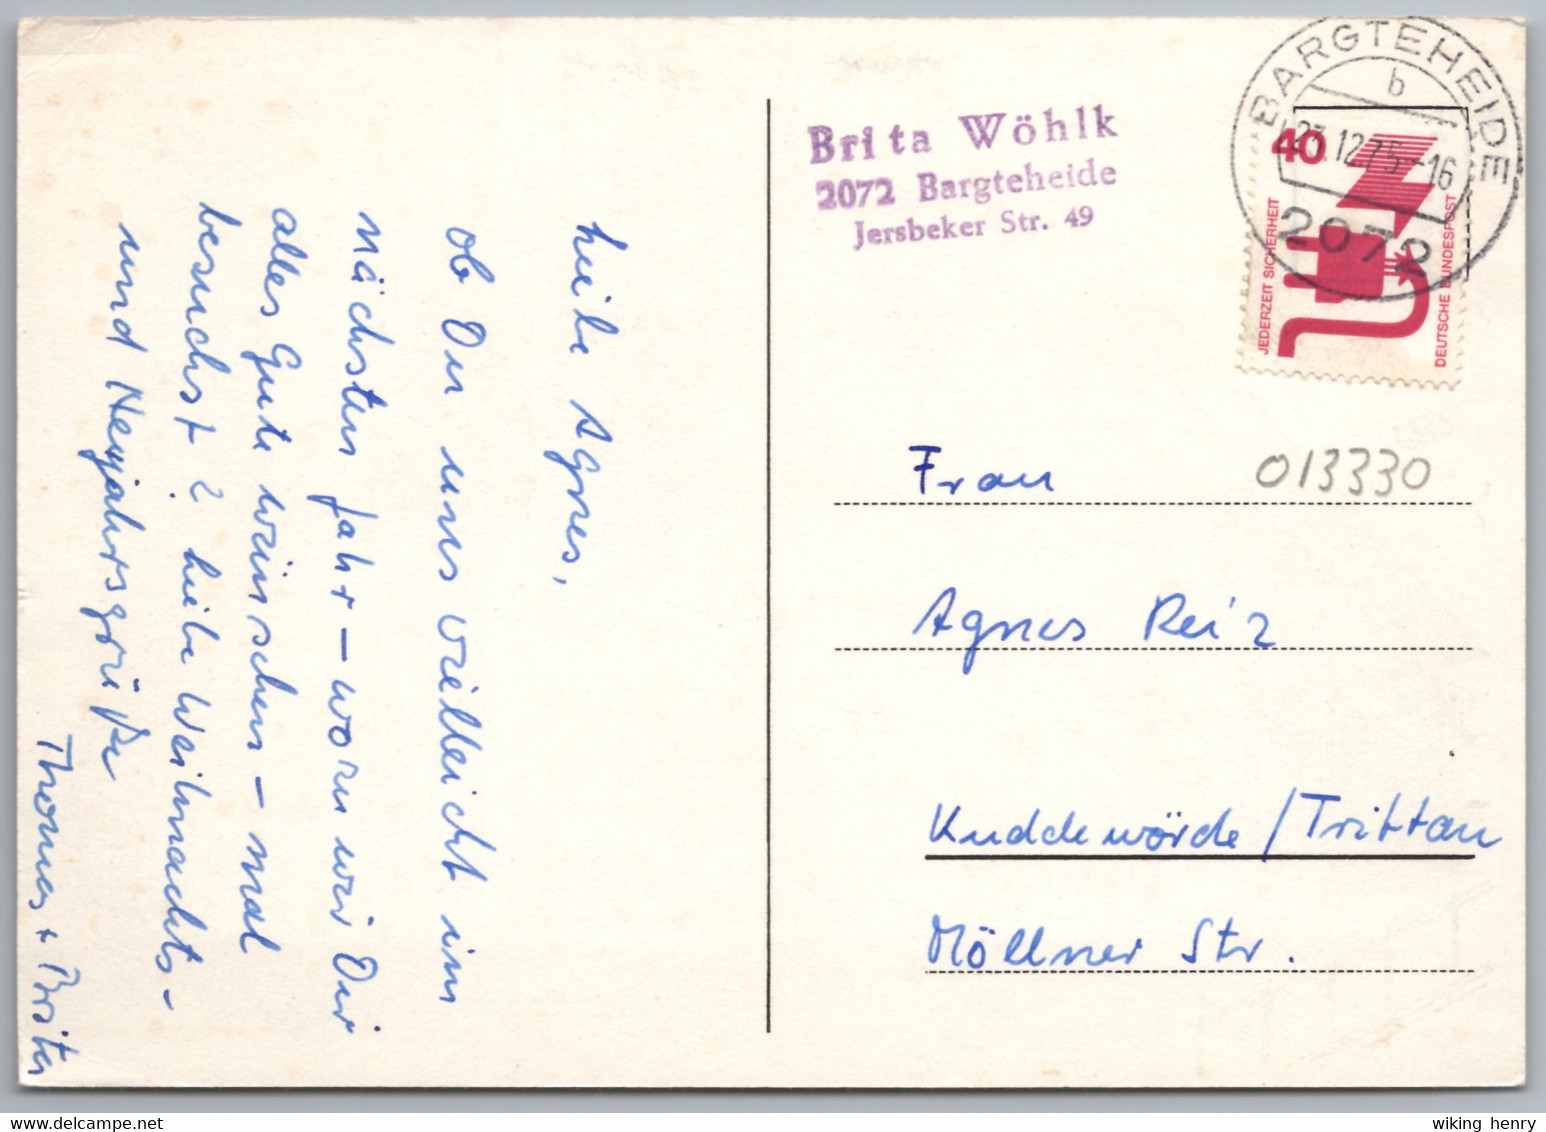 Liebe Agnes,
ob Du uns vielleicht im
nächsten Jahr – wozu wir Dir
alles Gute wünschen – mal
besuchst? Liebe Weihnachts-
und Neujahrsgrüße
Thomas + Brita
Brita Wöhlk
2072 Bargteheide
Jersbeker Str. 49
BARGTEHEIDE
b
23.12.75-16
2072
40
JEDERZEIT SICHERHEIT
DEUTSCHE BUNDESPOST
013330
Frau
Agnes Reiz
Kuddewörde/Trittau
Möllner Str.
wiking henry